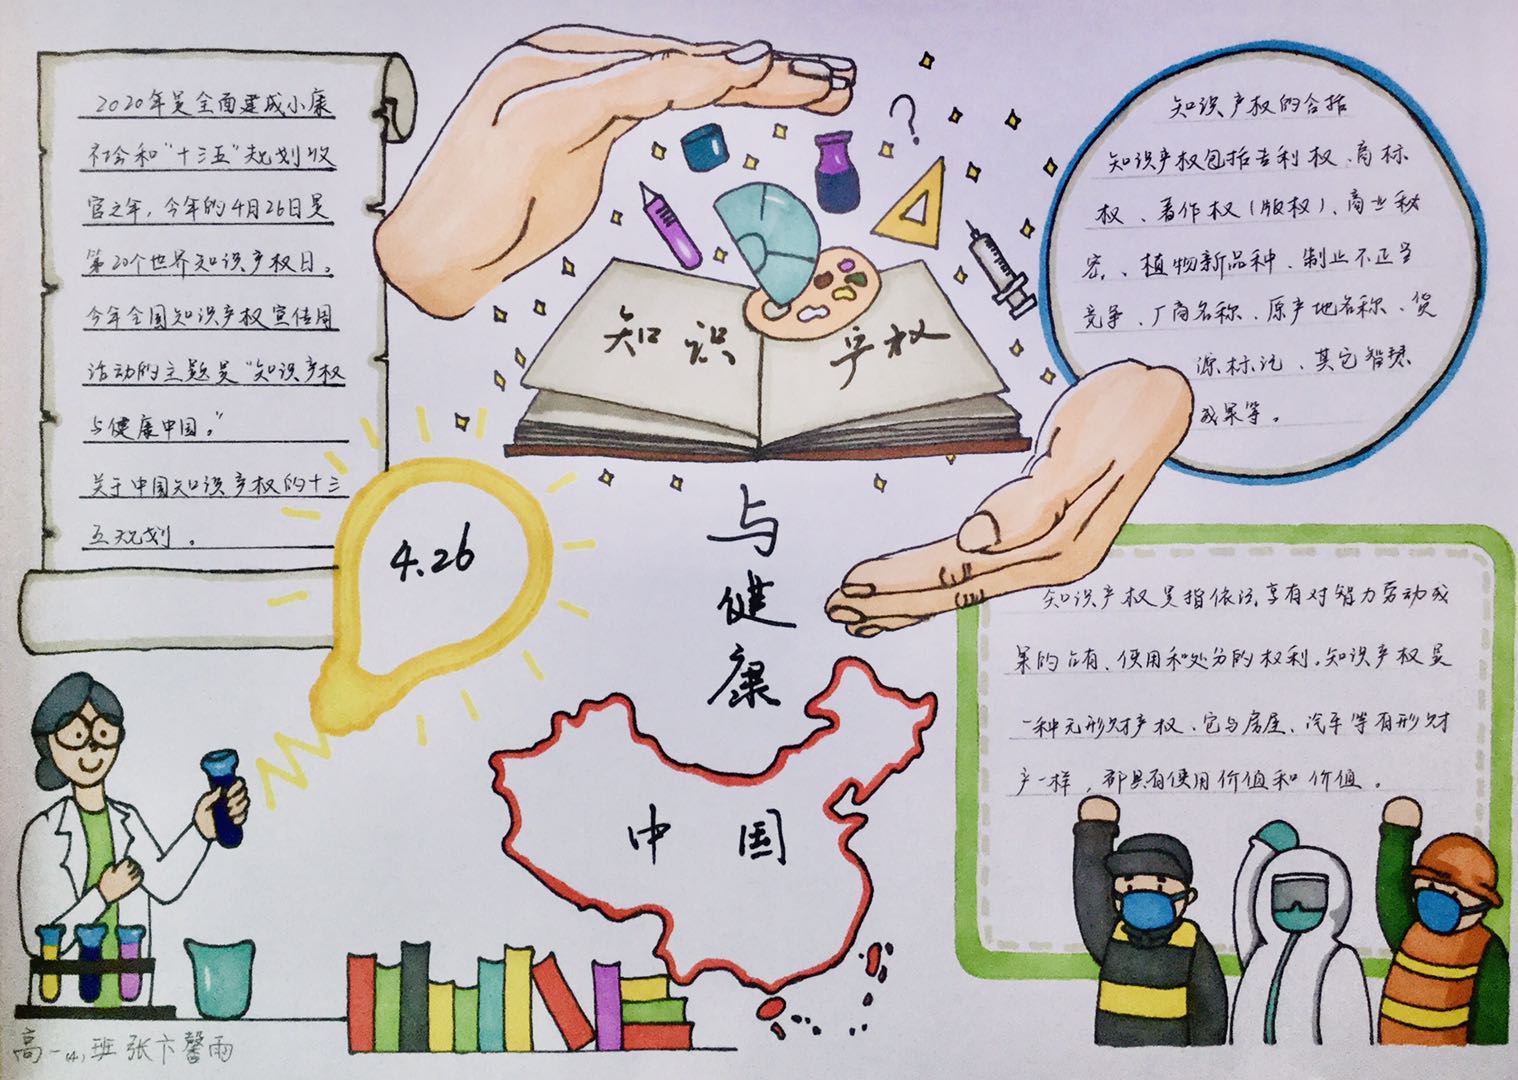 2020年是全面建成小康
社会和“十三五”规划收
官之年，今年的4月26日是
第20个世界知识产权日。
今年全国知识产权宣传周
活动的主题是“知识产权
与健康中国。”
关于中国知识产权的十三
五规划。
4.26
?
知识产权
与
健
康
中国
知识产权的合括
知识产权包括专利权、商标
权、著作权(版权)、商业秘
密、植物新品种、制止不正当
竞争、厂商名称、原产地名称、货
源标记、其它智慧
成果等。
知识产权是指依法享有对智力劳动成
果的占有、使用和处分的权利。知识产权是
一种无形财产权、它与房屋、汽车等有形财
产一样，都具有使用价值和价值。
高一(4)班张卞馨雨